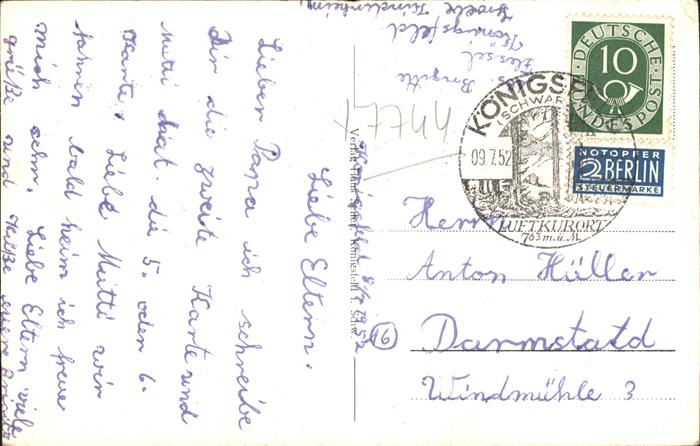 Königsfeld 8/7 1952
Liebe Eltern.
Lieber Papa ich schreibe
Dir die zweite Karte und
Mutti hat die 5. oder 6.
Karte. Liebe Mutti wir
fahren bald heim ich freue
mich sehr. Liebe Eltern viele
grüße und Küße euere Brigitte
Brigitte
Königsfeld
Kinderheim.
17744
Verlag Hans Spiegel, Königsfeld i. Schw.
DEUTSCHE BUNDESPOST
10
NOTOPFER
2 BERLIN
STEUERMARKE
KÖNIGSFELD
(SCHWARZW
09.7.52
LUFTKURORT
763 m.ü.M.
Herrn
Anton Hüller
(16) Darmstatd
Windmühle 3